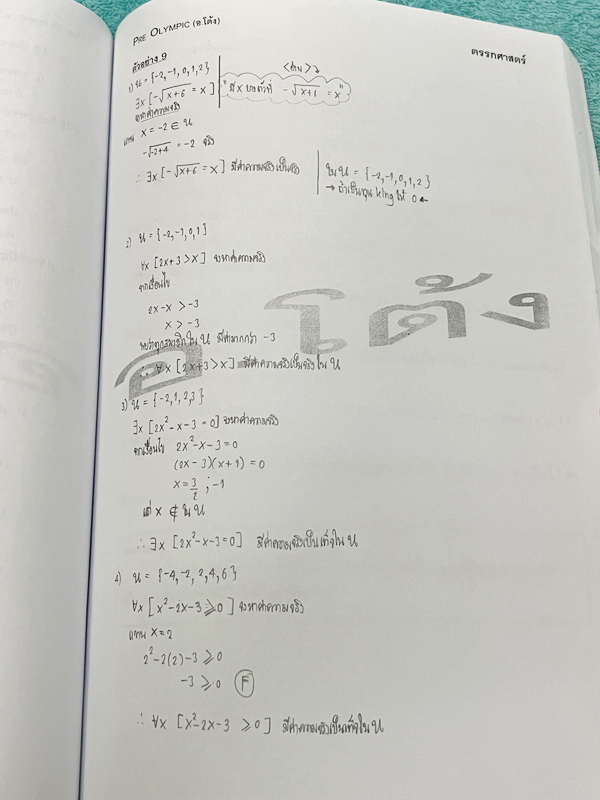 PRE OLYMPIC (อ.โต้ง)
ตรรกศาสตร์
ตัวอย่าง 9
1) U = {-2,-1,0,1,2}
∃x [-√x+6 = x]
จงหาค่าความจริง
<อ่าน>
"มี x บางตัวที่ -√x+6 = x"
แทน x = -2 ∈ U
-√-2+4 = -2 จริง
∴ ∃x [-√x+6 = x] มีค่าความจริงเป็นจริง
ใน U = {-2,-1,0,1,2}
2) U = {-2,-1,0,1}
∀x [2x+3 > x] จงหาค่าความจริง
จากเงื่อนไข
2x-x > -3
x > -3
พบว่าทุกสมาชิกใน U มีค่ามากกว่า -3
∴ ∀x [2x+3 > x] มีค่าความจริงเป็นจริงใน U
อ โต้ง
3) U = {-2,1,2,3}
∃x [2x²-x-3 = 0] จงหาค่าความจริง
จากเงื่อนไข 2x²-x-3 = 0
(2x-3)(x+1) = 0
x = 3/2 ; -1
แต่ x ∉ ใน U
∴ ∃x [2x²-x-3=0] มีค่าความจริงเป็นเท็จใน U
4) U = {-4,-2,2,4,6}
∀x [x²-2x-3 ≥ 0] จงหาค่าความจริง
แทน x = 2
2²-2(2)-3 ≥ 0
-3 ≥ 0 (F)
∴ ∀x [x²-2x-3 ≥ 0] มีค่าความจริงเป็นเท็จใน U